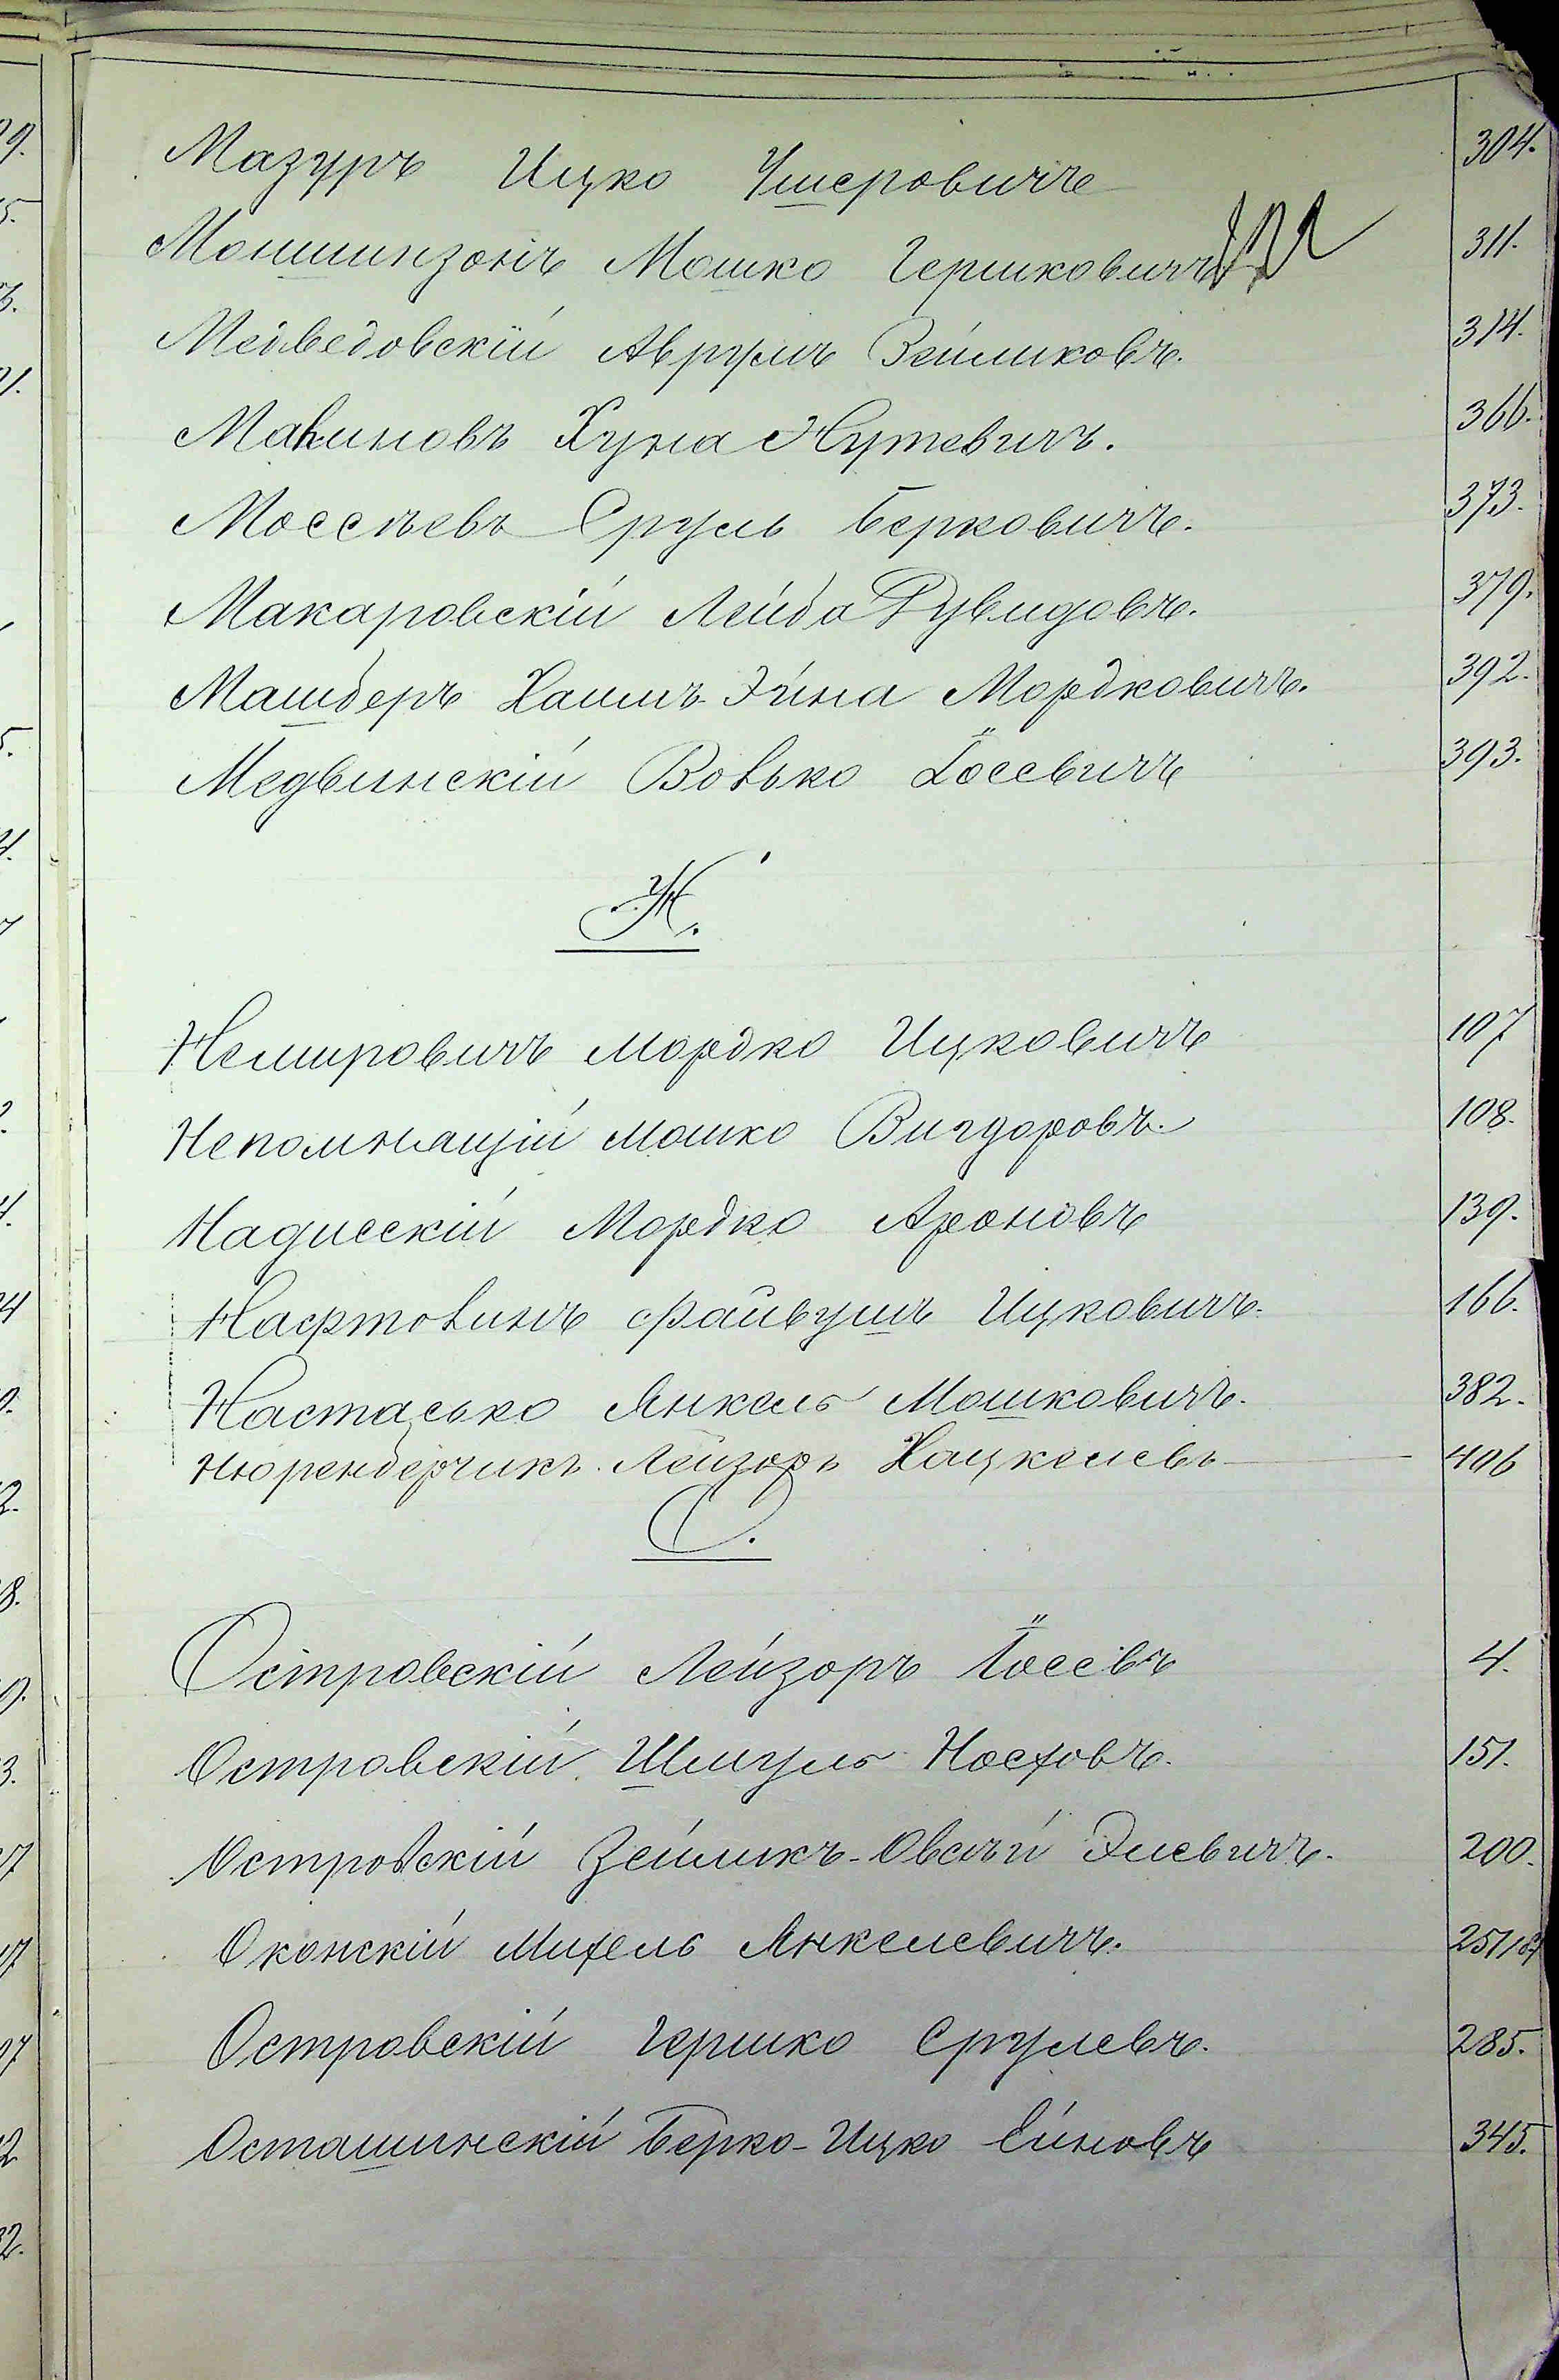 Мазуръ Ицко Ушеровичъ 304.
Моншинзонъ Мошко Гершковичъ 311.
Медведовскій Аврумъ Зейликовъ. 314.
Макиновъ Хуна Нутевичъ. 366.
Моссѣевъ Сруль Берковичъ. 373.
Макаровскій Лейба Рувидовъ. 379.
Машберъ Хаимъ-Эйна Мордковичъ. 392.
Медвинскій Вовько Іосевичъ 393.
Н.
Немировичъ Мордко Ицковичъ 107
Непомнящій Мошко Вигдоровъ. 108.
Надисскій Мордко Ароновъ 139.
Нафтовинъ Файвушъ Ицковичъ. 166.
Настасько Янкель Мошковичъ. 382.
Нюренберчикъ Лейзоръ Хацкелевъ 406
О.
Островскій Лейзоръ Іосевъ 4.
Островскій Шмуль Носховъ. 151.
Островскій Зейликъ-Овсѣй Элевичъ. 200.
Оконскій Михель Янкелевичъ. 251/
Островскій Гершко Срулевъ. 285.
Осташинскій Берко-Ицко Ейновъ 345.